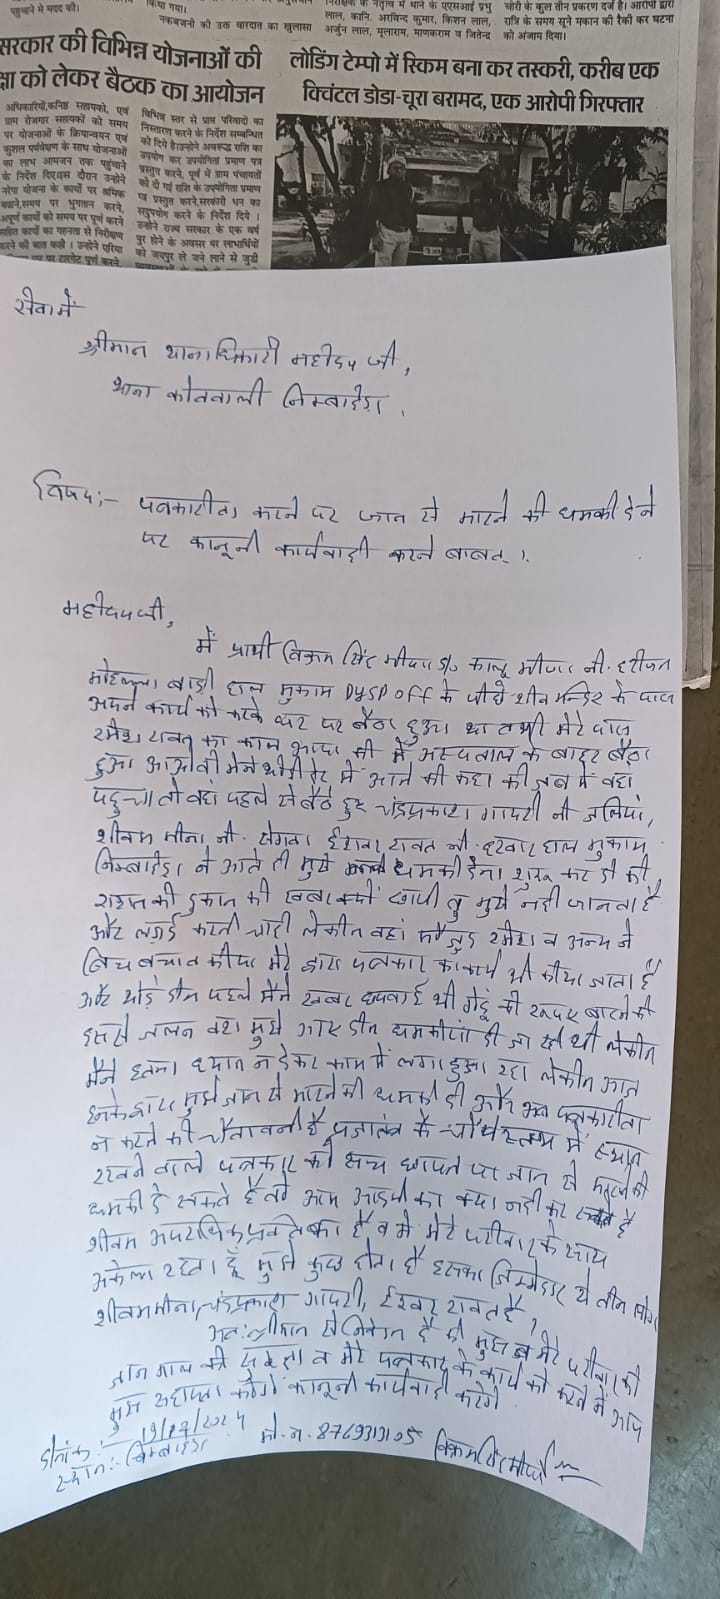 पहुचाने मे मदद की।
किया गया।
नकबजनो की उक्त वारदात का खुलासा
निरीक्षक के नेतृत्व में थाने के एएसआई प्रभु
लाल, कानि. अरविन्द कुमार, किशन लाल,
अर्जुन लाल, मूलाराम, माणकराम व जितेन्द्र
चोरी के कुल तीन प्रकरण दर्ज है। आरोपी द्वारा
रात्रि के समय सूने मकान की रैकी कर घटना
को अंजाम दिया।
सरकार की विभिन्न योजनाओं की
को लेकर बैठक का आयोजन
अधिकारियों,कनिष्ठ सहायको, एवं
ग्राम रोजगार सहायकों को समय
पर योजनाओं के क्रियान्वयन एवं
कुशल पर्यवेक्षण के साथ योजनाओं
का लाभ आमजन तक पहुंचाने
के निर्देश दिए।इस दौरान उन्होने
नरेगा योजना के कार्यो पर श्रमिक
बढाने,समय पर भुगतान करने,
अपूर्ण कार्यो को समय पर पूर्ण करने
सहित कार्यो का गहनता से निरीक्षण
करने की बात कही । उन्होने एरिया
पर टारगेट पूर्ण करने
विभिन्न स्तर से प्राप्त परिवादों का
निस्तारण करने के निर्देश सम्बन्धित
को दिये है।उन्होने अवरूद्ध राशि का
उपयोग कर उपयोगिता प्रमाण पत्र
प्रस्तुत करने, पूर्व में ग्राम पंचायतों
को दी गई राशि के उपयोगिता प्रमाण
पत्र प्रस्तुत करने,सरकारी धन का
सदुपयोग करने के निर्देश दिये ।
उन्होने राज्य सरकार के एक वर्ष
पूर होने के अवसर पर लाभार्थियों
को जयपुर ले जने लाने से जुडी
लोडिंग टेम्पो में स्किम बना कर तस्करी, करीब एक
क्विंटल डोडा-चूरा बरामद, एक आरोपी गिरफ्तार
सेवा में
श्रीमान थानाधिकारी महोदय जी,
थाना कोतवाली निम्बाहेडा.
विषय:- पत्रकारीता करने पर जान से मारने की धमकी देने
पर कानूनी कार्यवाही करने बाबत् ।
महोदयजी,
में प्रार्थी विक्रम सिंह मीणा S/o कालू मीणा नी. हरीजन
मोहल्ला बाड़ी हाल मुकाम DYSP OFF के पीछे शीव मन्दिर के पास
अपने कार्य को करके घर पर बैठा हुआ था तभी मेरे पास
रमेश रावत का काल आया की में अस्पताल के बाहर बैठा
हुआ आजाओ मेने थोडी देर में आने की कहा की जब में वहा
पहुचा तो वहा पहले से बैठे हुए चंद्रप्रकाश गायरी नी
शीवम मीना नी. ईश्वर रावत नी. हाल मुकाम
निम्बाहेडा ने आते ही मुझे धमकी देना शुरू कर दी की
राशन की दुकान की खबर क्यों छापी तु मुझे नही जानता है
और लड़ाई करनी चाही लेकीन वहां मौजुद रमेश व अन्य ने
बिच बचाव कीया मेरे द्वारा पत्रकार का कार्य भी कीया जाता है
और थोडे दीन पहले मैंने खबर छपवाई थी गेहूं की
इससे जलन वश मुझे आए दीन धमकीयां दी जा रही थी लेकीन
मैंने इतना ध्यान न देकर काम में लगा हुआ रहा लेकीन आज
इनके द्वारा मुझे जान से मारने की धमकी दी और अब पत्रकारीता
न करने की चेतावनी है प्रजातंत्र के चौथे स्तम्भ में स्थान
रखने वाले पत्रकार को सच छापने पर जान से मारने की
धमकी दे सकते है तो आम आदमी का क्या नही कर सकते है
शीवम अपराधिक प्रवृति का है व में मेरे परीवार के साथ
अकेला रहता हूँ मुझे कुछ होता है इसका जिम्मेदार ये तीन लोग
शीवम मीना, चंद्रप्रकाश गायरी, ईश्वर रावत है,
अतः श्रीमान से निवेदन है की मुझे व मेरे परीवार की
जान माल की सुरक्षा व मेरे पत्रकार के कार्य को करने में आप
मुझे सहायता करेगें कानूनी कार्यवाही करेगे
दीनांक:-
स्थान:- निम्बाहेडा
मो. न. 8769313105
विक्रम सिंह मीणा